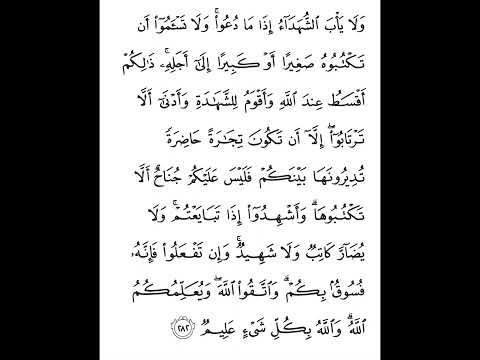 وَلَا يَأْبَ ٱلشُّهَدَآءُ إِذَا مَا دُعُوا۟ ۚ وَلَا تَسْـَٔمُوٓا۟ أَن
تَكْتُبُوهُ صَغِيرًا أَوْ كَبِيرًا إِلَىٰٓ أَجَلِهِۦ ۚ ذَٰلِكُمْ
أَقْسَطُ عِندَ ٱللَّهِ وَأَقْوَمُ لِلشَّهَـٰدَةِ وَأَدْنَىٰٓ أَلَّا
تَرْتَابُوٓا۟ ۖ إِلَّآ أَن تَكُونَ تِجَـٰرَةً حَاضِرَةً
تُدِيرُونَهَا بَيْنَكُمْ فَلَيْسَ عَلَيْكُمْ جُنَاحٌ أَلَّا
تَكْتُبُوهَا ۗ وَأَشْهِدُوٓا۟ إِذَا تَبَايَعْتُمْ ۚ وَلَا
يُضَآرَّ كَاتِبٌ وَلَا شَهِيدٌ ۚ وَإِن تَفْعَلُوا۟ فَإِنَّهُۥ
فُسُوقٌۢ بِكُمْ ۗ وَٱتَّقُوا۟ ٱللَّهَ ۖ وَيُعَلِّمُكُمُ
ٱللَّهُ ۗ وَٱللَّهُ بِكُلِّ شَىْءٍ عَلِيمٌ ﴿٢٨٢﴾